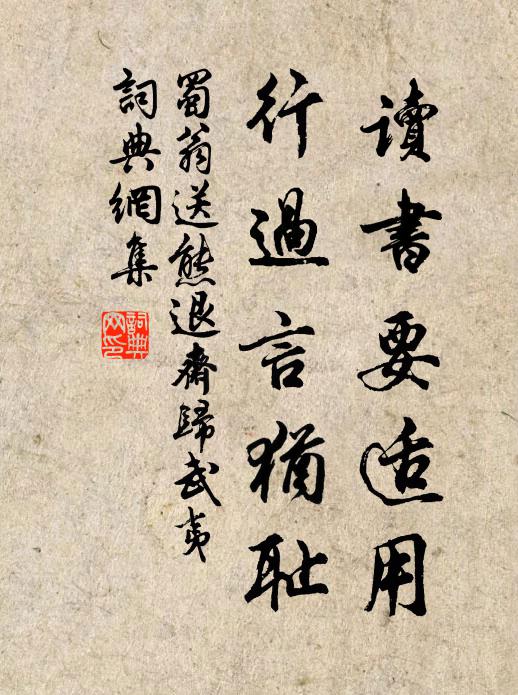 讀書要适用
行過言猶耻
蜀翁送熊退齋歸武夷
詞典網集
詞典网印